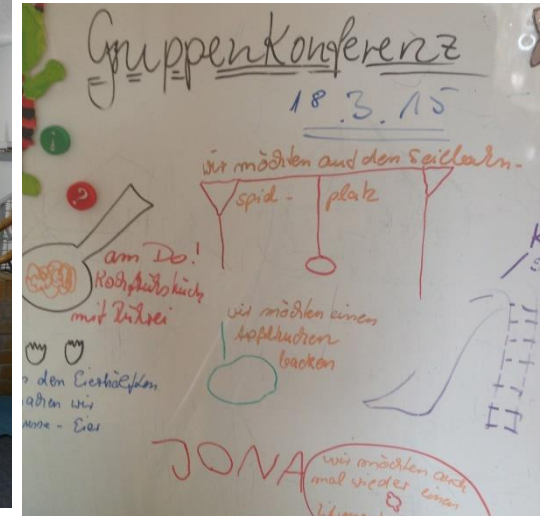 Gruppenkonferenz
18.3.15
wir möchten auf den Seilbahn-
spiel- platz
am Do!
Kochfrühstück
mit Rührei
wir möchten einen
Apfelkuchen
backen
den Eierhälften
wir
Eier
JONA
wir möchten auch
mal wieder einen